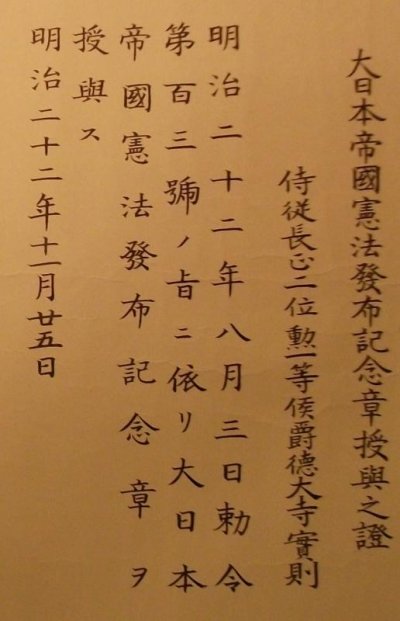 大日本帝國憲法發布記念章授與之證
侍従長正二位勲一等侯爵德大寺實則
明治二十二年八月三日勅令
第百三號ノ旨ニ依リ大日本
帝國憲法發布記念章ヲ
授與ス
明治二十二年十一月廿五日